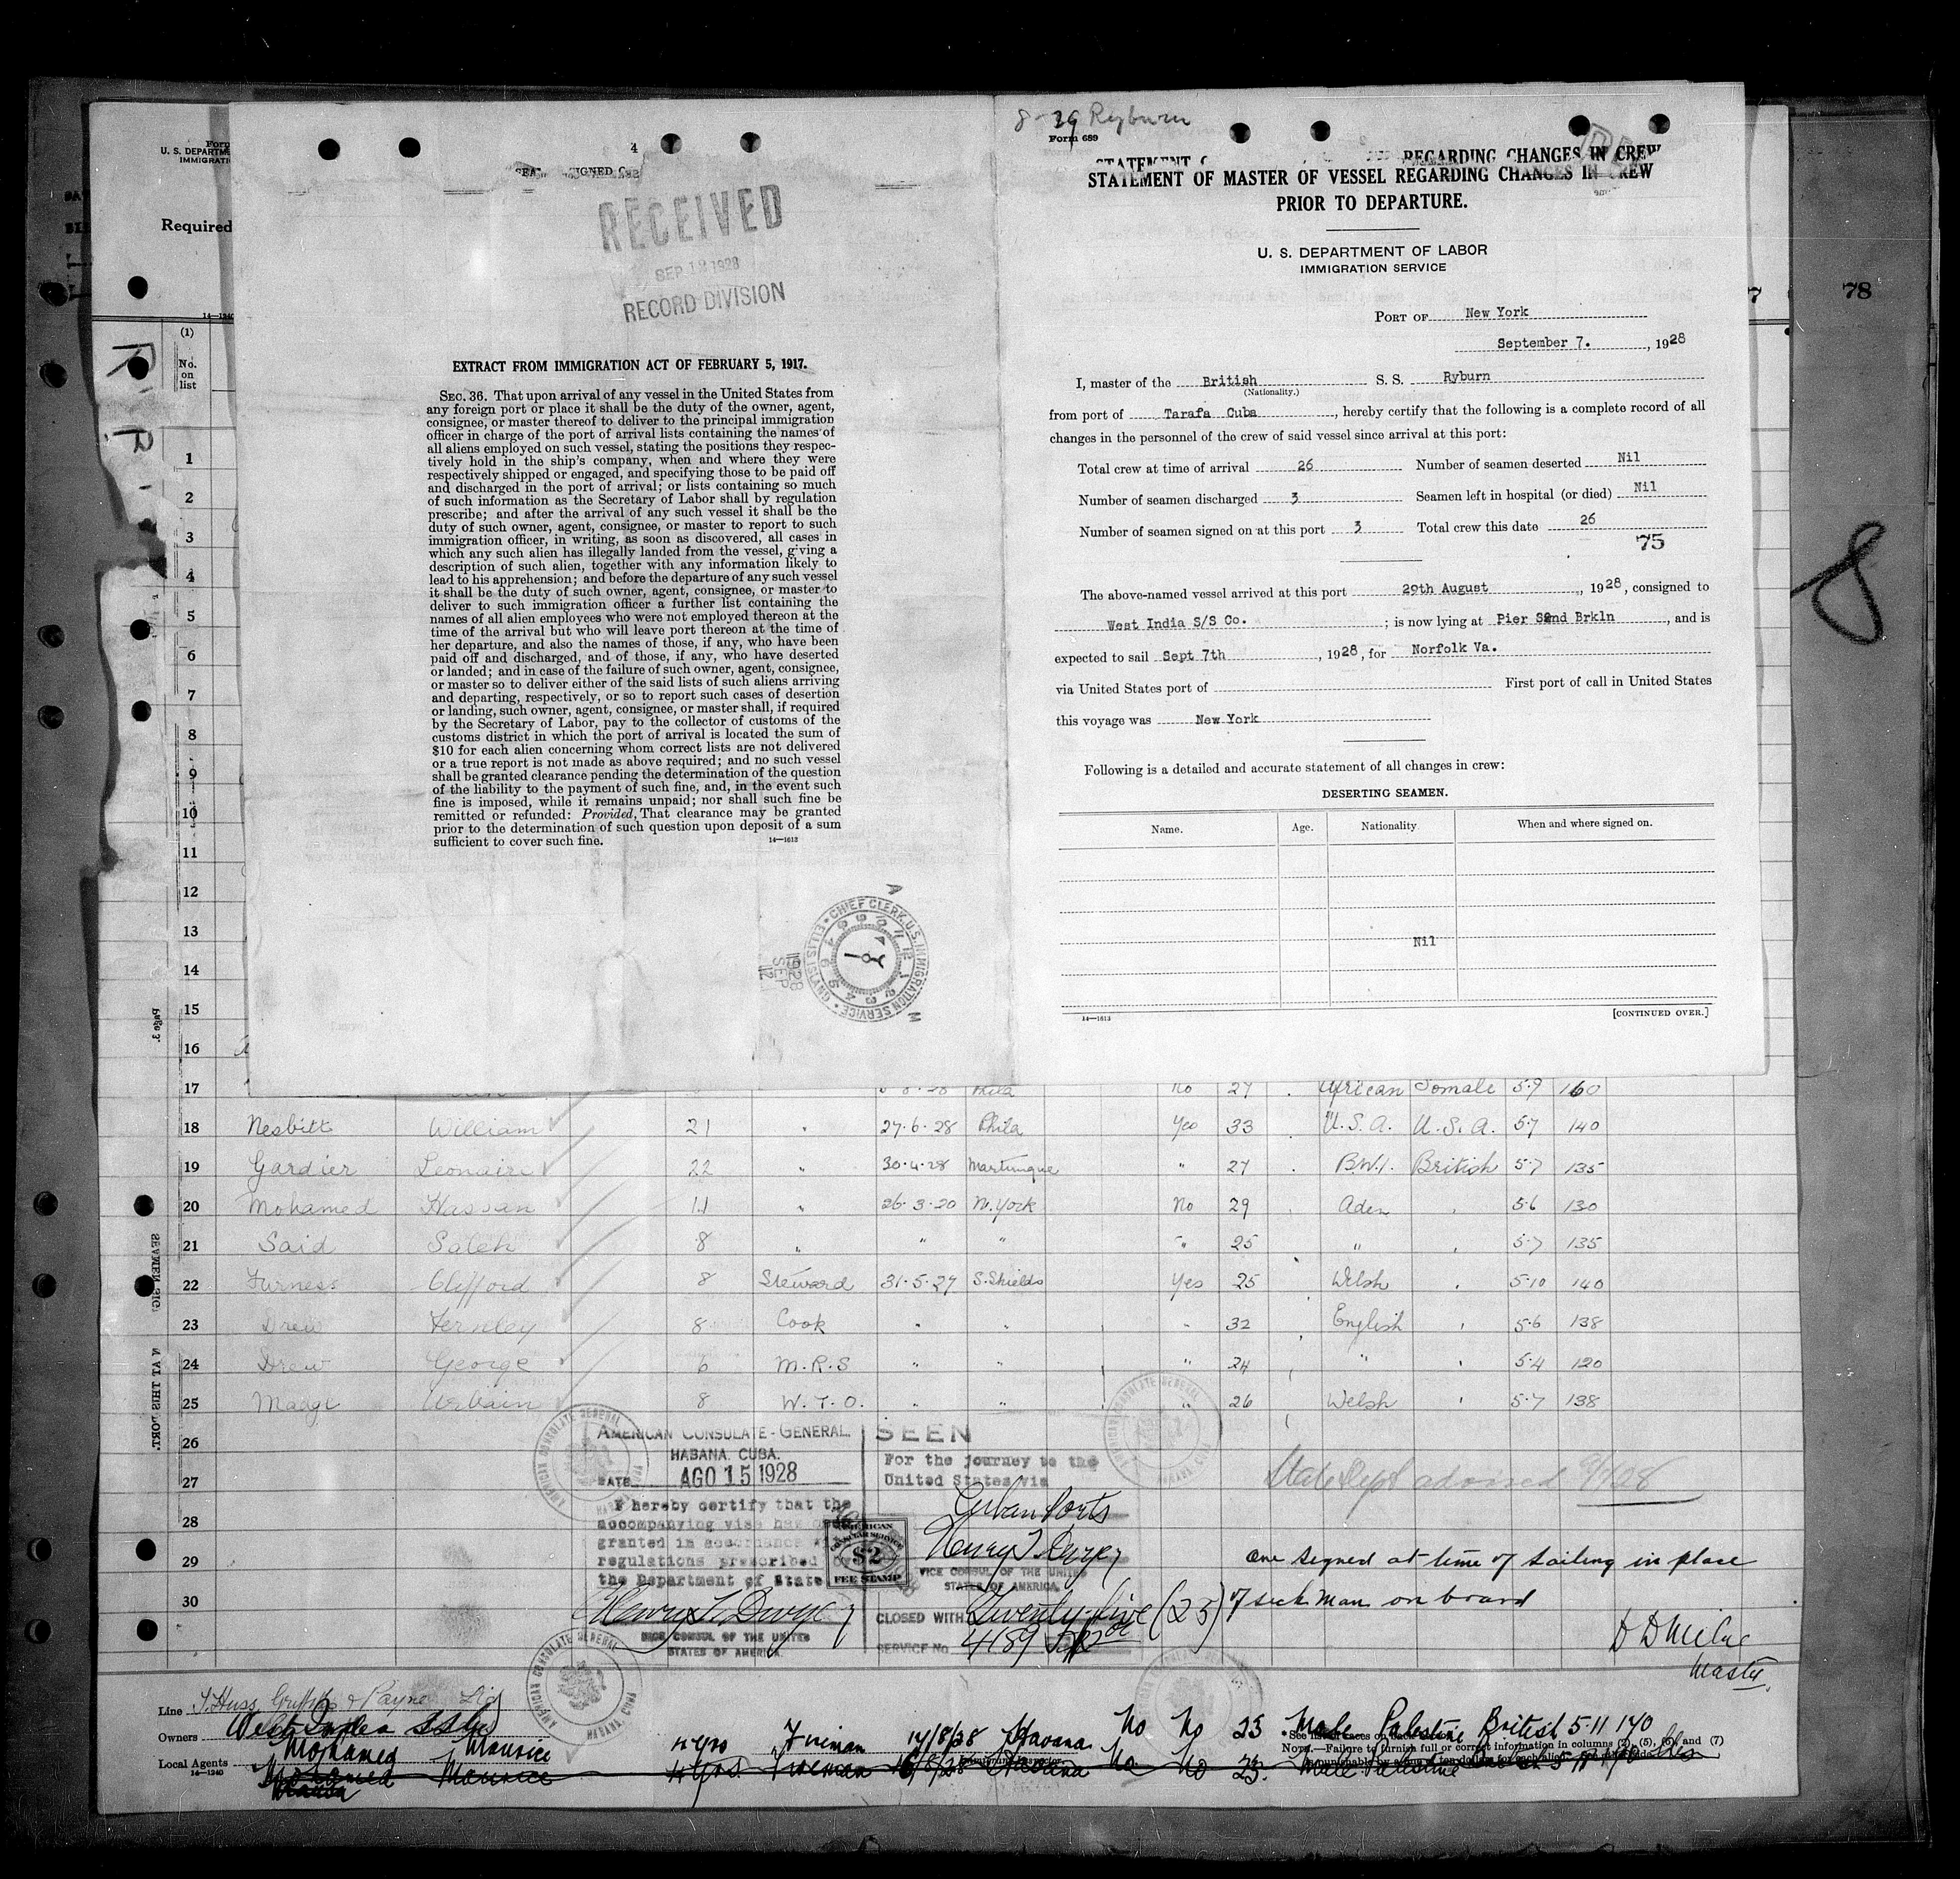 8-29 Ryburn
Form 689
STATEMENT OF MASTER OF VESSEL REGARDING CHANGES IN CREW
PRIOR TO DEPARTURE.
U. S. DEPARTMENT OF LABOR
IMMIGRATION SERVICE
PORT OF New York
September 7. , 1928
I, master of the British S. S. Ryburn
(Nationality.)
from port of Tarafa Cuba , hereby certify that the following is a complete record of all
changes in the personnel of the crew of said vessel since arrival at this port:
Total crew at time of arrival 26 Number of seamen deserted Nil
Number of seamen discharged 3 Seamen left in hospital (or died) Nil
Number of seamen signed on at this port 3 Total crew this date 26
75
The above-named vessel arrived at this port 29th August , 1928, consigned to
West India S/S Co. ; is now lying at Pier 52nd Brkln , and is
expected to sail Sept 7th , 1928, for Norfolk Va.
via United States port of First port of call in United States
this voyage was New York
Following is a detailed and accurate statement of all changes in crew:
DESERTING SEAMEN.
Name. Age. Nationality When and where signed on.
Nil
14—1613 [CONTINUED OVER.]
4
RECEIVED
SEP 12 1928
RECORD DIVISION
EXTRACT FROM IMMIGRATION ACT OF FEBRUARY 5, 1917.
SEC. 36. That upon arrival of any vessel in the United States from
any foreign port or place it shall be the duty of the owner, agent,
consignee, or master thereof to deliver to the principal immigration
officer in charge of the port of arrival lists containing the names of
all aliens employed on such vessel, stating the positions they respec-
tively hold in the ship's company, when and where they were
respectively shipped or engaged, and specifying those to be paid off
and discharged in the port of arrival; or lists containing so much
of such information as the Secretary of Labor shall by regulation
prescribe; and after the arrival of any such vessel it shall be the
duty of such owner, agent, consignee, or master to report to such
immigration officer, in writing, as soon as discovered, all cases in
which any such alien has illegally landed from the vessel, giving a
description of such alien, together with any information likely to
lead to his apprehension; and before the departure of any such vessel
it shall be the duty of such owner, agent, consignee, or master to
deliver to such immigration officer a further list containing the
names of all alien employees who were not employed thereon at the
time of the arrival but who will leave port thereon at the time of
her departure, and also the names of those, if any, who have been
paid off and discharged, and of those, if any, who have deserted
or landed; and in case of the failure of such owner, agent, consignee,
or master so to deliver either of the said lists of such aliens arriving
and departing, respectively, or so to report such cases of desertion
or landing, such owner, agent, consignee, or master shall, if required
by the Secretary of Labor, pay to the collector of customs of the
customs district in which the port of arrival is located the sum of
$10 for each alien concerning whom correct lists are not delivered
or a true report is not made as above required; and no such vessel
shall be granted clearance pending the determination of the question
of the liability to the payment of such fine, and, in the event such
fine is imposed, while it remains unpaid; nor shall such fine be
remitted or refunded: Provided, That clearance may be granted
prior to the determination of such question upon deposit of a sum
sufficient to cover such fine.
14—1613
CHIEF CLERK, U.S. IMMIGRATION SERVICE
ELLIS ISLAND
1928 SEP 12
Form
U. S. DEPARTME
IMMIGRATI
Required
14—1240
78
8
(1)
No.
on
list
1
2
3
4
5
6
7
8
9
10
11
12
13
14
15
Page 3.
16
17 Phila No 27 African Somali 5·9 160
18 Nesbitt William 21 " 27·6·28 Phila Yes 33 U.S.A. U.S.A. 5·7 140
19 Gardier Leonaire 22 " 30·4·28 Martinique " 27 B.W.I. British 5·7 135
20 Mohamed Hassan 11 " 26·3·20 N. York No 29 Aden " 5·6 130
21 Said Saleh 8 " " " " 25 " " 5·7 135
22 Furness Clifford 8 Steward 31·5·27 S. Shields Yes 25 Welsh " 5·10 140
23 Drew Fernley 8 Cook " " " 32 English " 5·6 138
24 Drew George 6 M.R.S " " " 24 " " 5·4 120
25 Madge Urbain 8 W.T.O. " " " 26 Welsh " 5·7 138
26
27
28
29
30
AMERICAN CONSULATE-GENERAL.
HABANA, CUBA.
DATE AGO 15 1928
I hereby certify that the
accompanying visa has been
granted in accordance with
regulations prescribed by
the Department of State
VICE CONSUL OF THE UNITED
STATES OF AMERICA.
AMERICAN CONSULATE GENERAL HABANA, CUBA
AMERICAN
$2
FEE STAMP
SEEN
For the journey to the
United States via
Cuban Ports
VICE CONSUL OF THE UNITED
STATES OF AMERICA.
CLOSED WITH Twenty-five (25)
SERVICE NO. 4189
State Dept advised
One signed at time of sailing in place
of sick man on board
D D Milne
Master
Line
Owners West India SS Co
Local Agents
14—1240
Mohamed Maurice 4 yrs Fireman 14/8/28 Havana No No 23 Male Palestine British 5·11 170
Mohamed Maurice 4 yrs. Fireman Havana No No 23. Male Palestine
NOTE.—Failure to furnish full or correct information in columns (2), (5), (6), and (7)